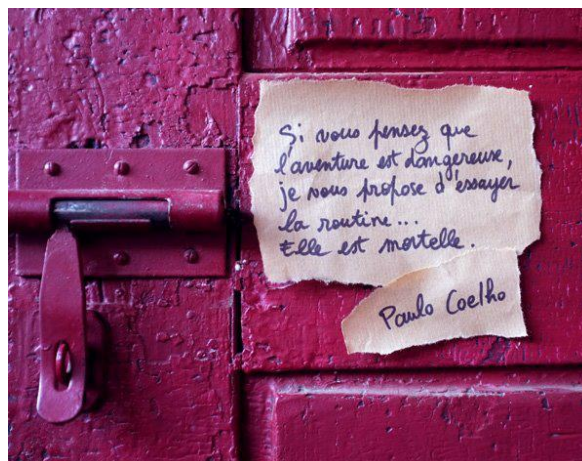 Si vous pensez que
l'aventure est dangereuse,
je vous propose d'essayer
la routine...
Elle est mortelle.
Paulo Coelho